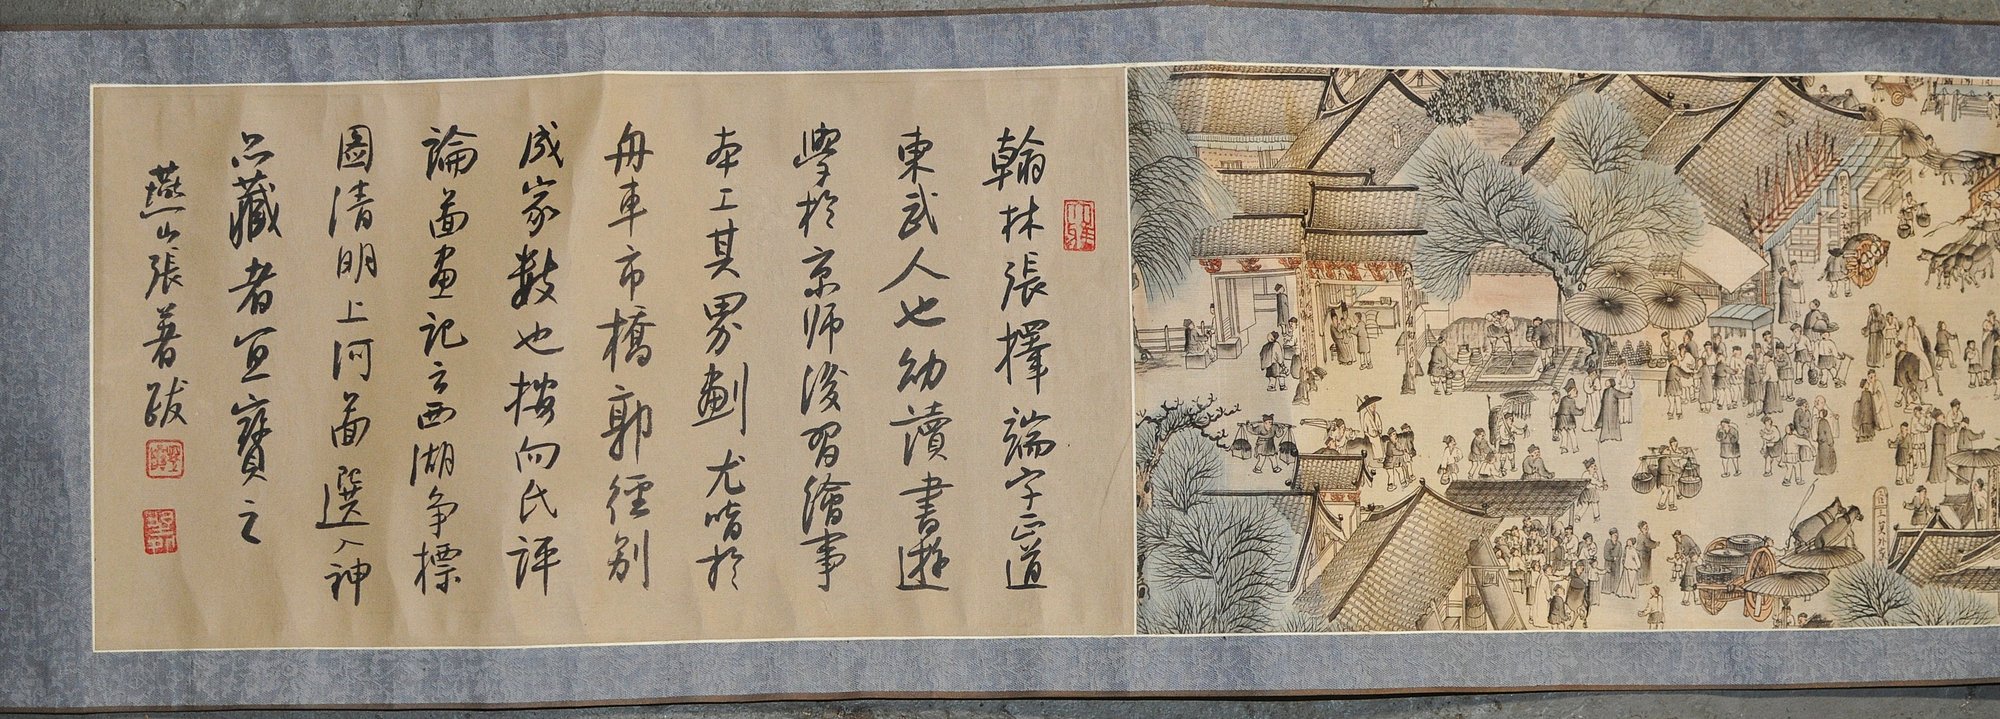 翰林張擇端字正道
東武人也幼讀書遊
學於京师後習繪事
本工其界劃尤嗜於
舟車市橋郭徑别
成家數也按向氏評
論啚畫記云西湖争標
圖清明上河啚選入神
品藏者宜寳之
燕山張著跋